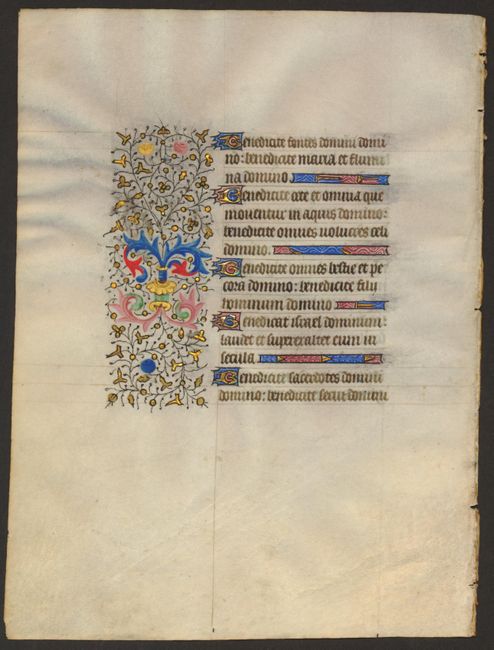 Benedicite fontes domini domi
no: benedicite maria et flumi
na domino
Benedicite cete et omnia que
mouentur in aquis domino:
benedicite omnes uolucres celi
domino.
Benedicite omnes bestie et pe
cora domino: benedicite filii
hominum domino
Benedicat israel dominum:
laudet et superexaltet eum in
secula
Benedicite sacerdotes domini
domino: benedicite serui domini